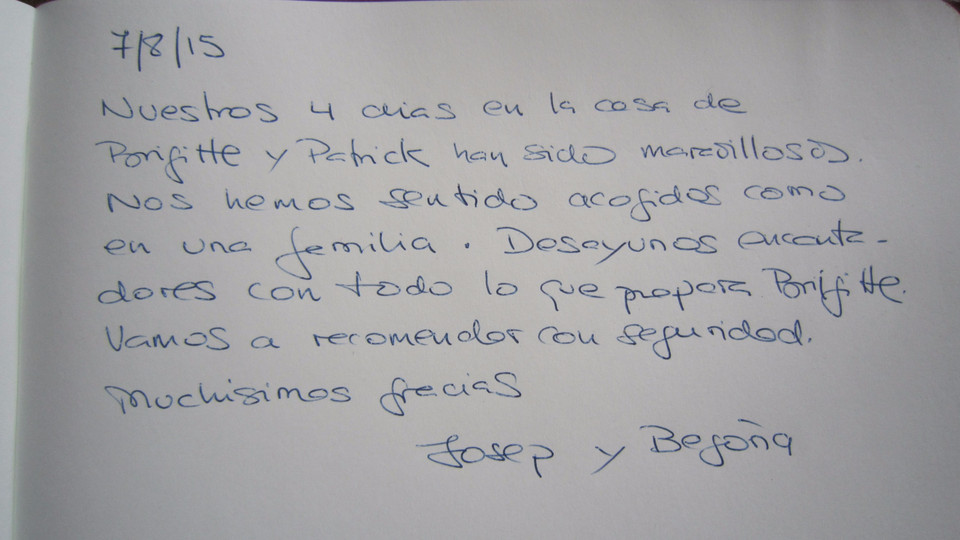 7/8/15
Nuestros 4 dias en la casa de
Brigitte y Patrick han sido maravillosos.
Nos hemos sentido acogidos como
en una familia. Desayunos encanta-
dores con todo lo que prepara Brigitte.
Vamos a recomendar con seguridad.
Muchisimos gracias
Josep y Begoña